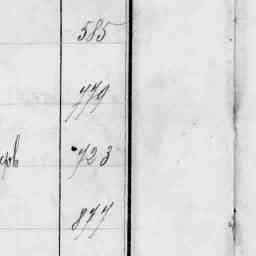 585
779
723
877